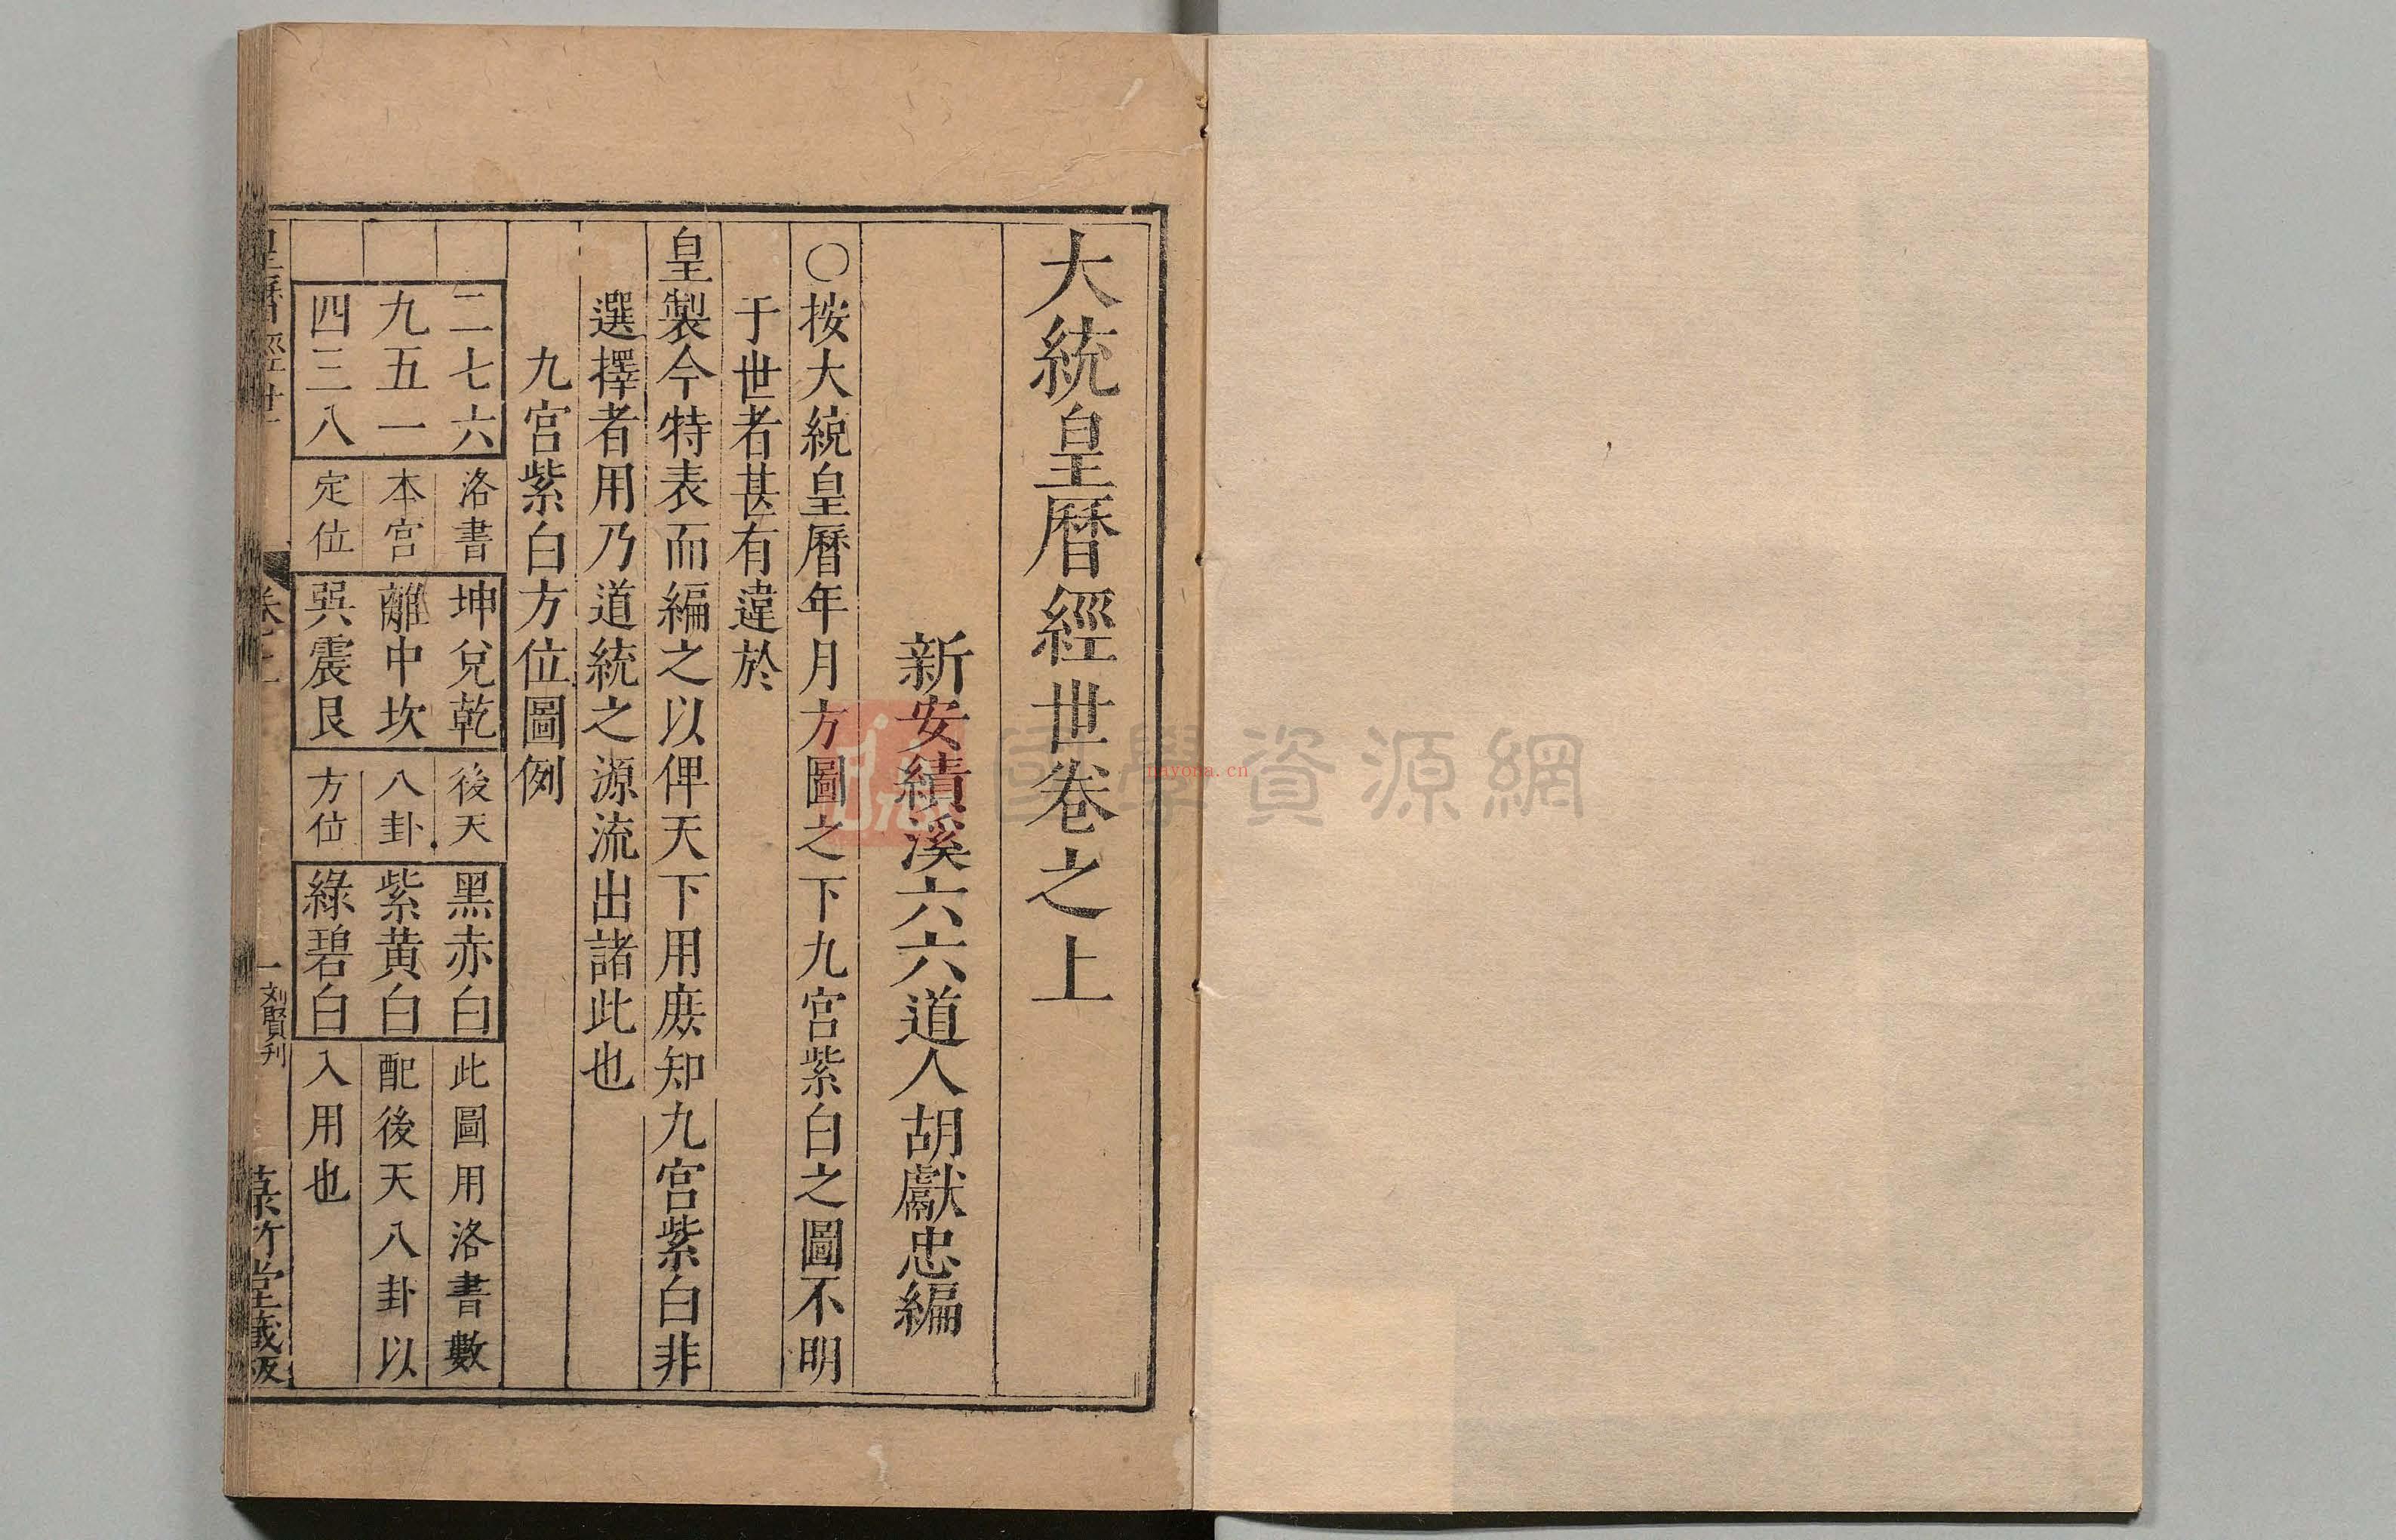 大統皇曆經世卷之上
新安績溪六六道人胡獻忠編
○按大統皇曆年月方圖之下九宮紫白之圖不明
于世者甚有違於
皇製今特表而編之以俾天下用庶知九宮紫白非
選擇者用乃道統之源流出諸此也
九宮紫白方位圖例
二七六 洛書 坤兌乾 後天 黑赤白 此圖用洛書數
九五一 本宮 離中坎 八卦 紫黃白 配後天八卦以
四三八 定位 巽震艮 方位 綠碧白 入用也
皇曆經世 卷之上 一 刘賢刋 菉竹堂藏板
國學資源網
nayona.cn